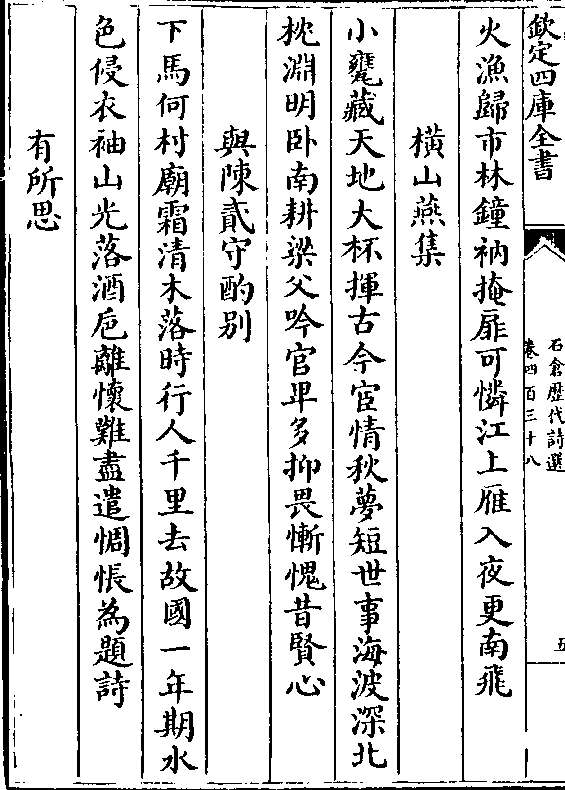 欽定四庫全書
石倉歴代詩選
卷四百三十八
五
火漁歸市林鐘衲掩扉可憐江上雁入夜更南飛
橫山燕集
小甕藏天地大杯揮古今宦情秋夢短世事海波深北
枕淵明卧南耕梁父吟官卑多抑畏慚愧昔賢心
與陳貳守酌别
下馬何村廟霜清木落時行人千里去故國一年期水
色侵衣袖山光落酒巵離懷難盡遣惆悵為題詩
有所思